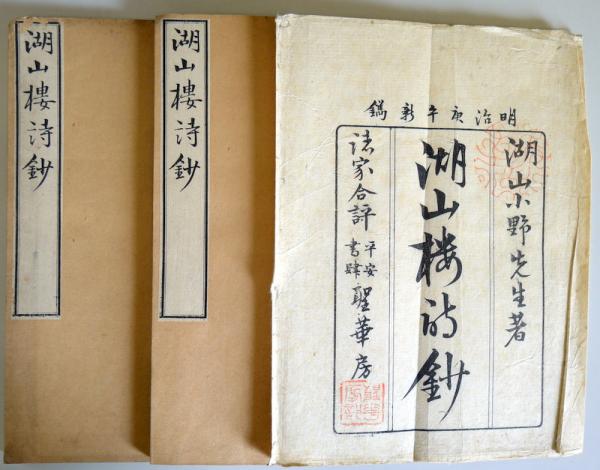 湖山樓詩鈔
湖山樓詩鈔
明治庚午新鐫
湖山小野先生著
湖山楼詩鈔
諸家合評
平安
書肆
聖華房